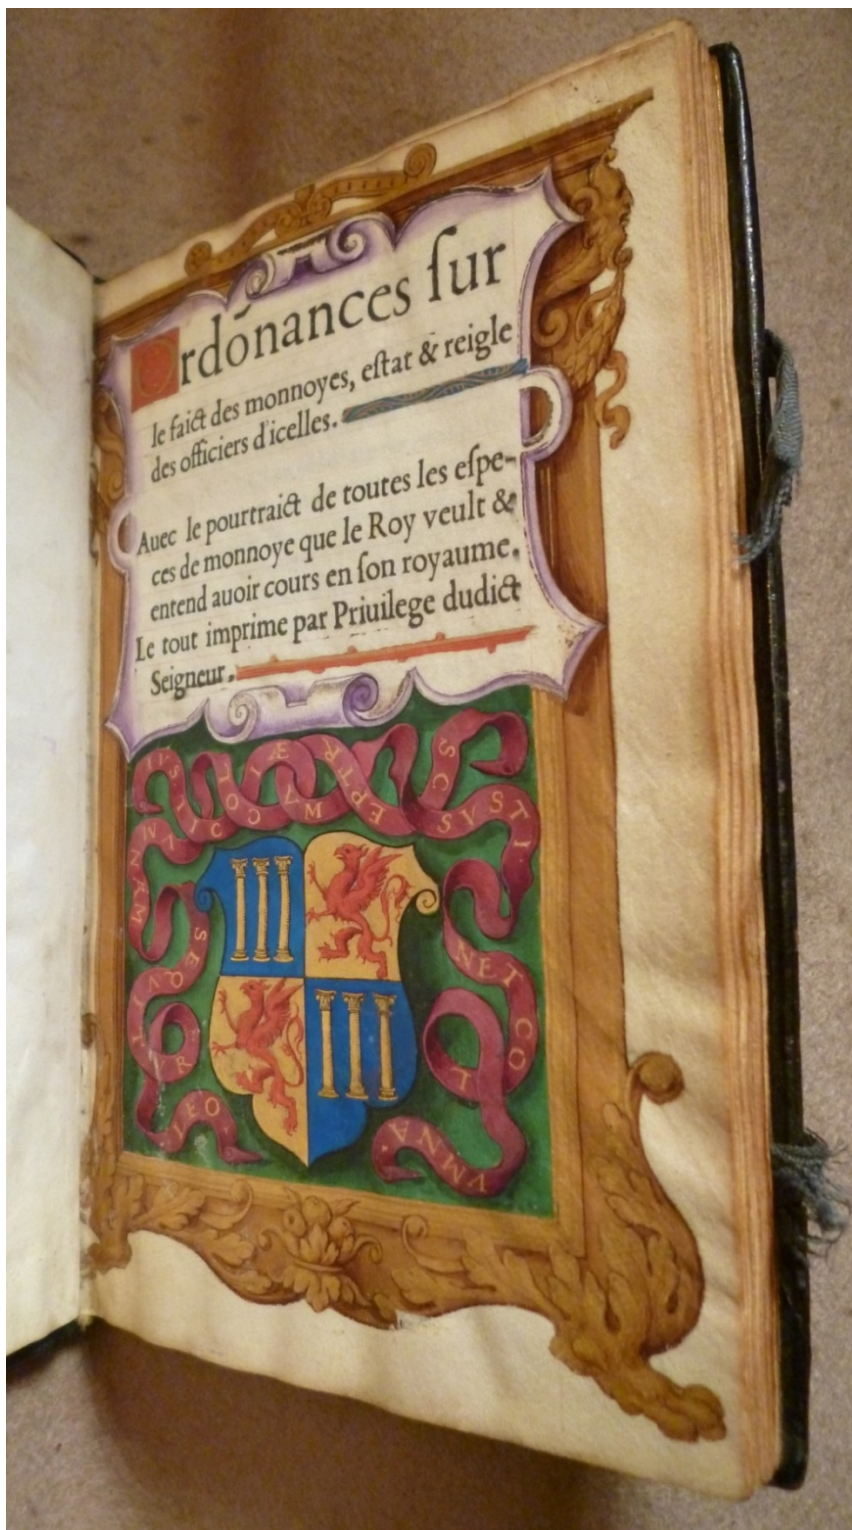 Ordónances ſur
le faict des monnoyes, eſtat & reigle
des officiers d'icelles.
Auec le pourtraict de toutes les eſpe-
ces de monnoye que le Roy veult &
entend auoir cours en ſon royaume.
Le tout imprime par Priuilege dudict
Seigneur.
SVSTI
NET CO
L
VMNA
NAM
SEQVIT
VR
LEO